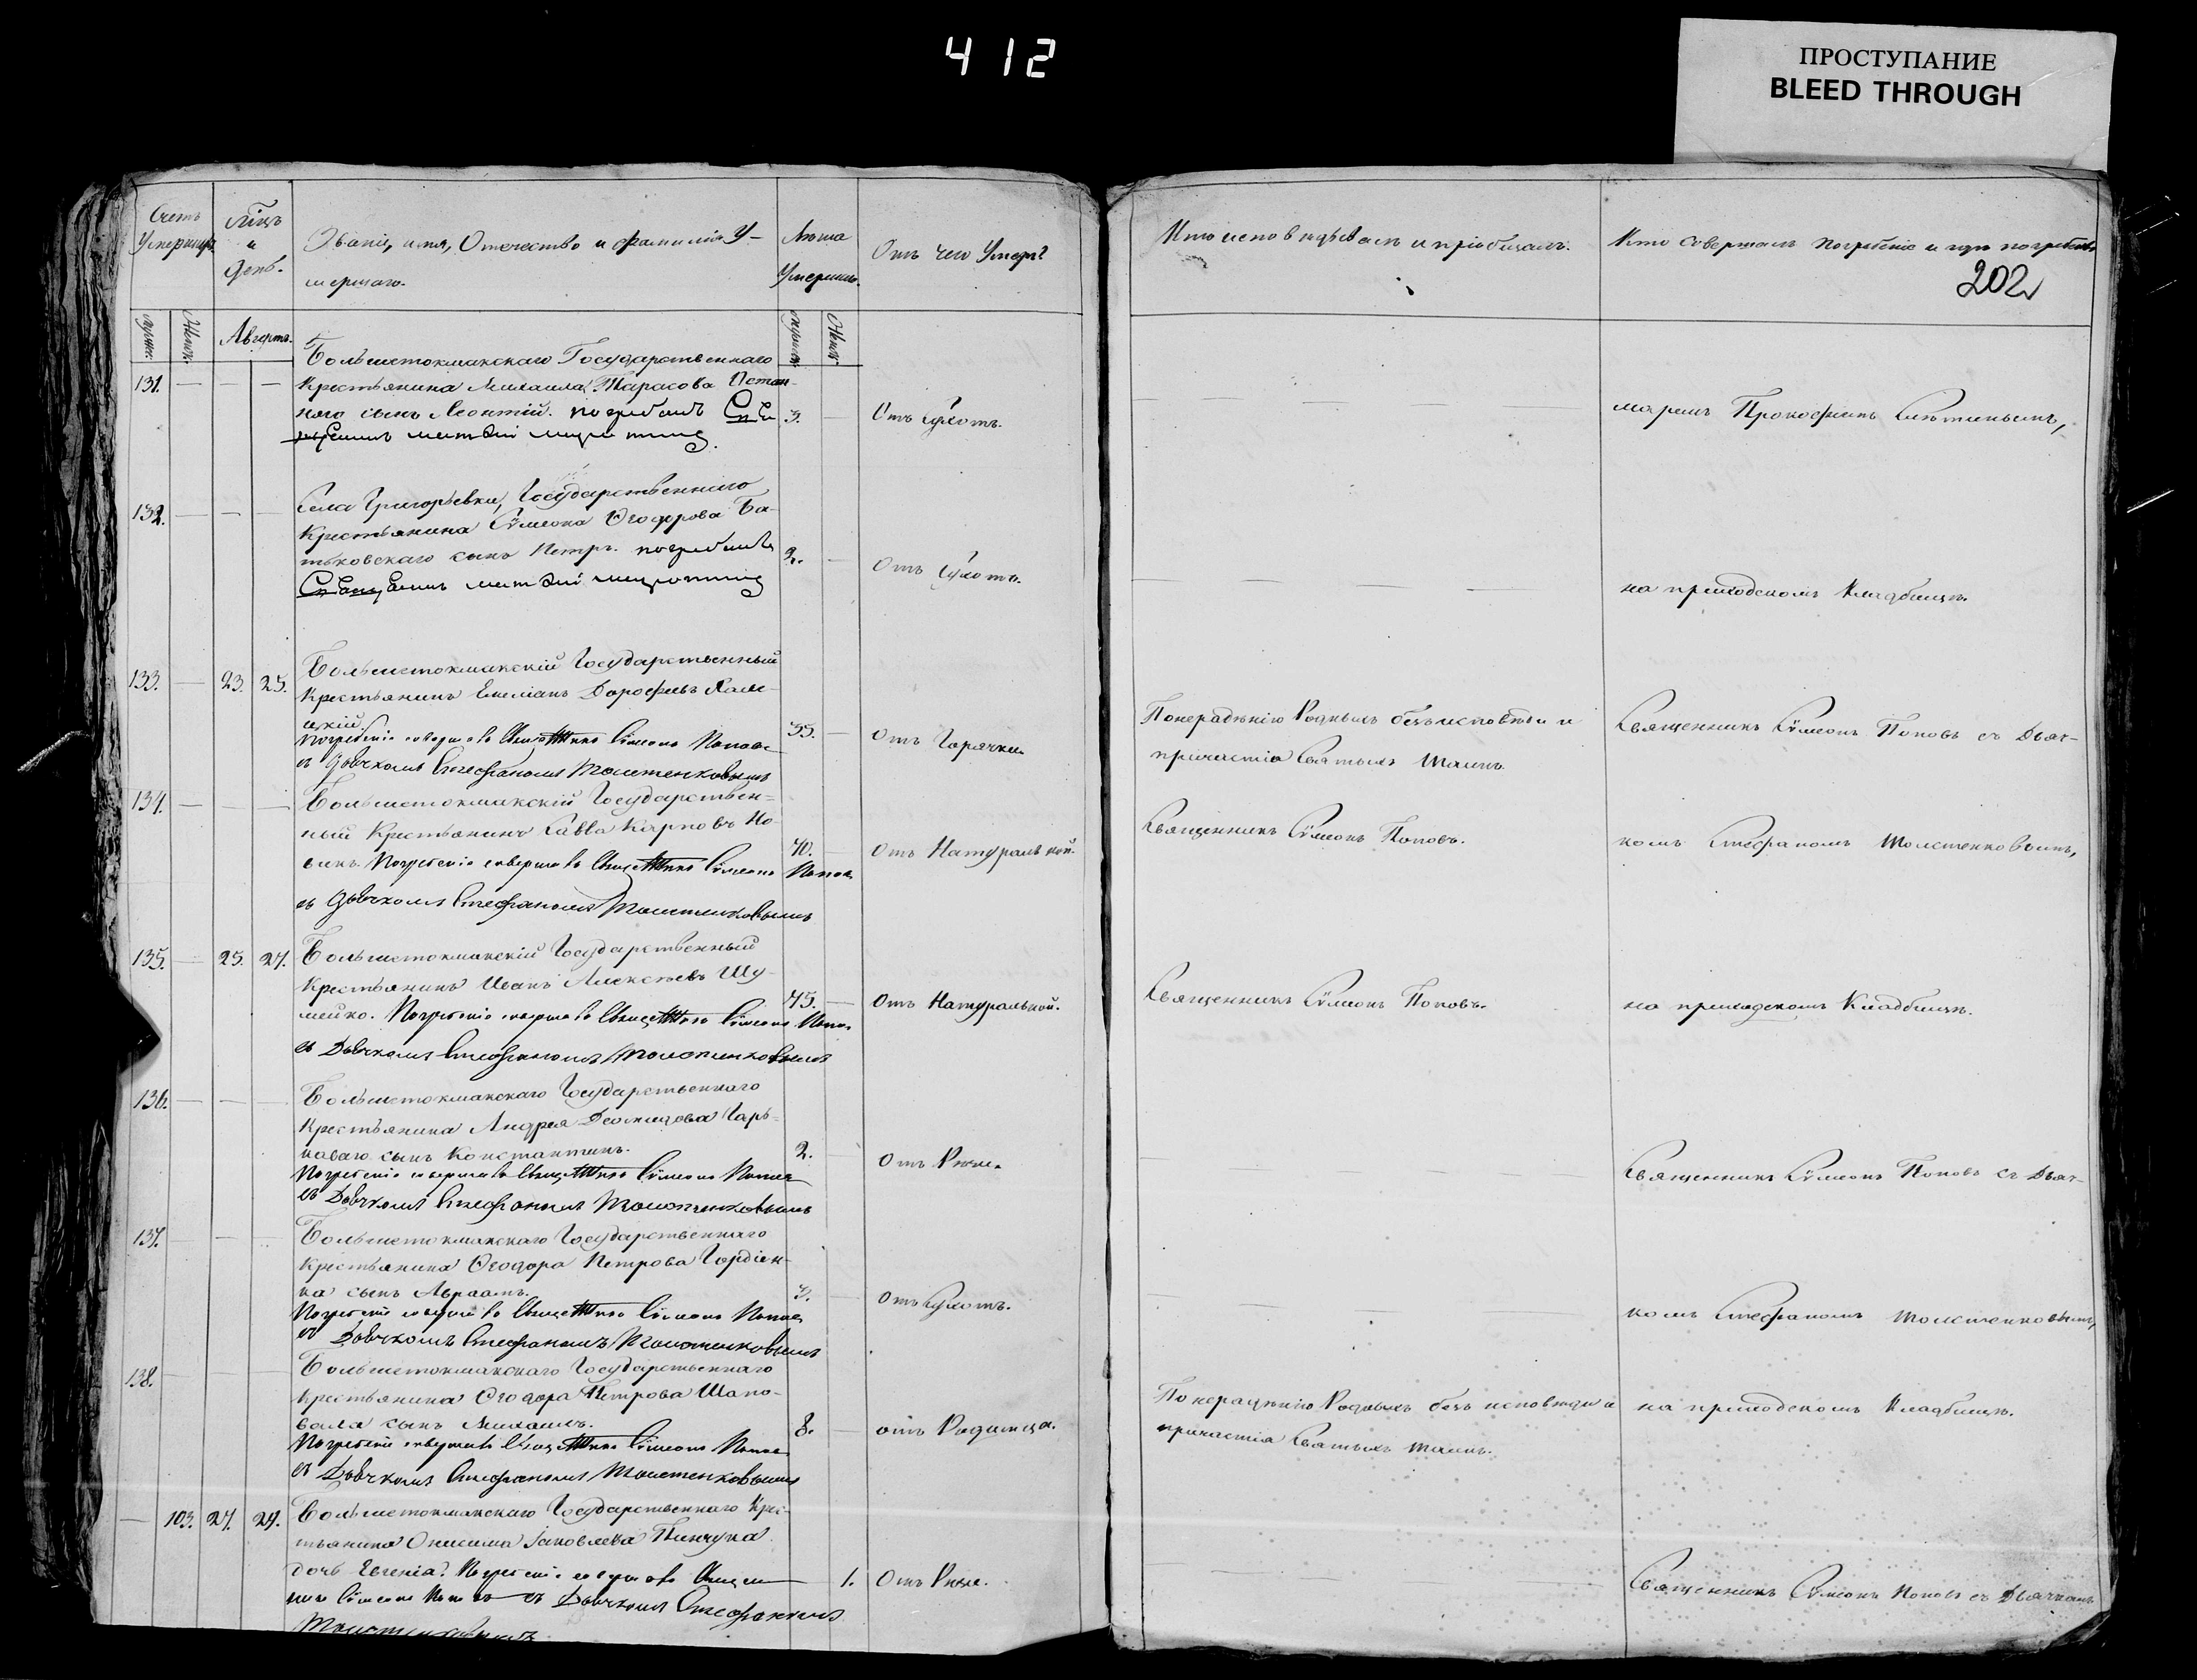 412
ПРОСТУПАНИЕ
BLEED THROUGH
Счетъ Умершихъ
Мѣцъ и день.
Званіе, имя, Отечество и фамилія У-
мершаго.
Лѣта Умершаго.
Отъ чего Умеръ?
Кто исповѣдывалъ и пріобщалъ.
Кто совершалъ погребеніе и гдѣ погребенъ
202
Августъ.
Большетокмакскаго Государственнаго
131. — — — Крестьянина Михаила Тарасова
наго сынъ Леонтій.
3. — Отъ сухотъ.
маремъ Прокофіемъ
132. — — — Села Григорьевки, Государственнаго
Крестьянина Сѷмеона Ѳеодорова Ба-
тьковскаго сынъ Петръ.
2. — Отъ сухотъ.
на приходскомъ Кладбищѣ.
133. — 23. 25. Большетокмакскій Государственный
Крестьянинъ Емеліанъ Дорофеевъ
цкій
Погребеніе совершалъ Священникъ Сѷмеонъ Поповъ
съ Дьячкомъ Стефаномъ Толстенковымъ
35. — Отъ Горячки
Понерадѣнію Родныхъ безъ исповѣди и
причастія Святыхъ Таинъ.
Священникъ Сѷмеонъ Поповъ съ Дьяч-
134. — — — Большетокмакскій Государствен-
ный Крестьянинъ Савва Карповъ Но-
викъ. Погребеніе совершалъ Священникъ Сѷмеонъ Поповъ
съ Дьячкомъ Стефаномъ Толстенковымъ
40. — Отъ Натуральной.
Священникъ Сѷмеонъ Поповъ.
комъ Стефаномъ Толстенковымъ,
135. — 25. 27. Большетокмакскій Государственный
Крестьянинъ Иванъ Алексѣевъ Шу-
мейко. Погребеніе совершалъ Священникъ Сѷмеонъ Поповъ
съ Дьячкомъ Стефаномъ Толстенковымъ
45. — Отъ Натуральной.
Священникъ Сѷмеонъ Поповъ.
на приходскомъ Кладбищѣ.
136. — — — Большетокмакскаго Государственнаго
Крестьянина Андрея Деомидова Гарь-
коваго сынъ Константинъ.
Погребеніе совершалъ Священникъ Сѷмеонъ Поповъ
съ Дьячкомъ Стефаномъ Толстенковымъ
2. Отъ Рожи.
Священникъ Сѷмеонъ Поповъ съ Дьяч-
137. — — — Большетокмакскаго Государственнаго
Крестьянина Ѳеодора Петрова Гордіен-
ка сынъ Авраамъ.
Погребеніе совершалъ Священникъ Сѷмеонъ Поповъ
съ Дьячкомъ Стефаномъ Толстенковымъ
3. — Отъ Сухотъ.
комъ Стефаномъ Толстенковымъ,
138. — — — Большетокмакскаго Государственнаго
Крестьянина Ѳеодора Петрова Шапо-
вала сынъ Михаилъ.
Погребеніе совершалъ Священникъ Сѷмеонъ Поповъ
съ Дьячкомъ Стефаномъ Толстенковымъ
8. — отъ Родимца.
Понерадѣнію Родныхъ безъ исповѣди и
причастія Святыхъ Таинъ.
на приходскомъ Кладбищѣ.
— 103. 27. 29. Большетокмакскаго Государственнаго Крес-
тьянина Онисима Іаковлева Пинчука
дочь Евгенія. Погребеніе совершалъ Священ-
никъ Сѷмеонъ Поповъ съ Дьячкомъ Стефаномъ
Толстенковымъ
1. Отъ Рожи.
Священникъ Сѷмеонъ Поповъ съ Дьячкомъ